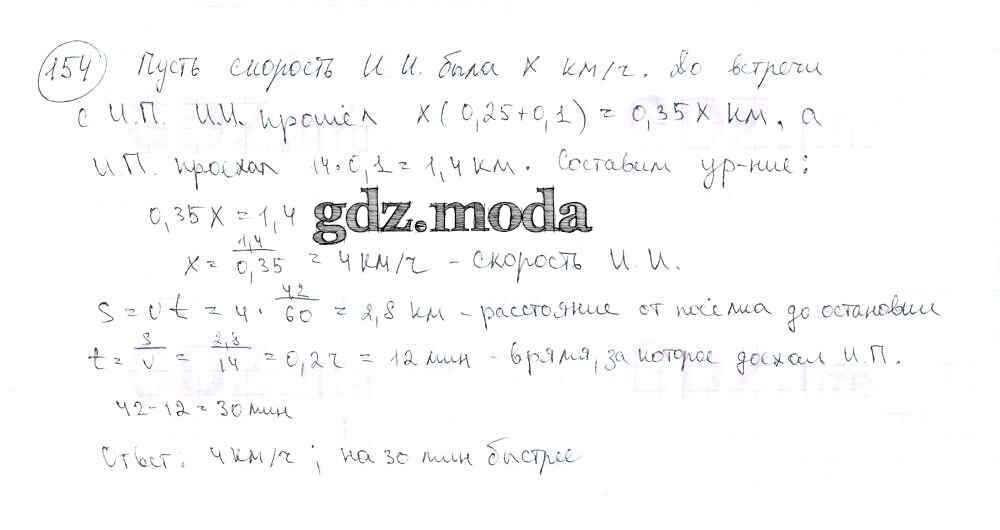 154 Пусть скорость И И. была х км/ч. До встречи
с И.П. И.И. прошёл х(0,25+0,1) = 0,35х км, а
И П. проехал 14·0,1 = 1,4 км. Составим ур-ние:
0,35х = 1,4
gdz.moda
х = 1,4/0,35 = 4 км/ч - скорость И. И.
S = vt = 4 · 42/60 = 2,8 км - расстояние от посёлка до остановки
t = S/v = 2,8/14 = 0,2 ч = 12 мин - время, за которое доехал И.П.
42-12 = 30 мин
Ответ: 4 км/ч ; на 30 мин быстрее